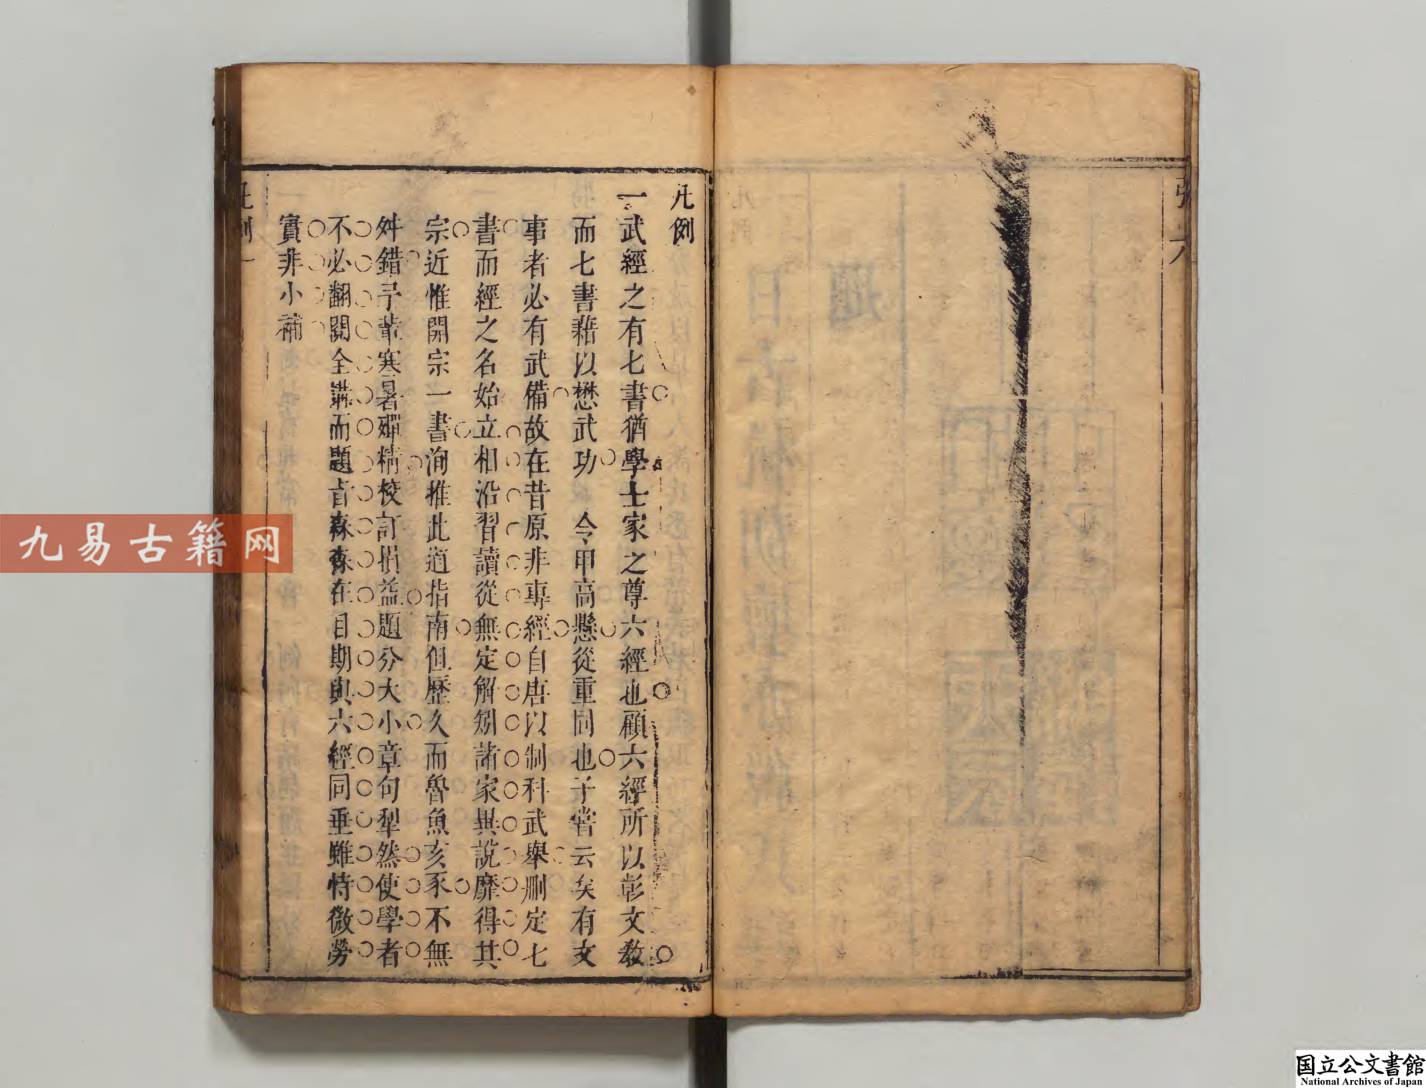 凡例
一武經之有七書猶學士家之尊六經也顧六經所以彭文教
而七書藉以懋武功　令甲高懸從重同也子嘗云矣有文
事者必有武備故在昔原非專經自唐以制科武舉刪定七
書而經之名始立相沿習讀從無定解剏諸家異說靡得其
宗近惟開宗一書洵推此道指南但歷久而魯魚亥豕不無
舛錯予寒暑殫精校訂損益題分大小章句犁然使學者
不必翻閱全講而題旨森森在目期與六經同垂雖恃微勞
實非小補
凡例一
九易古籍网
国立公文書館
National Archives of Japan